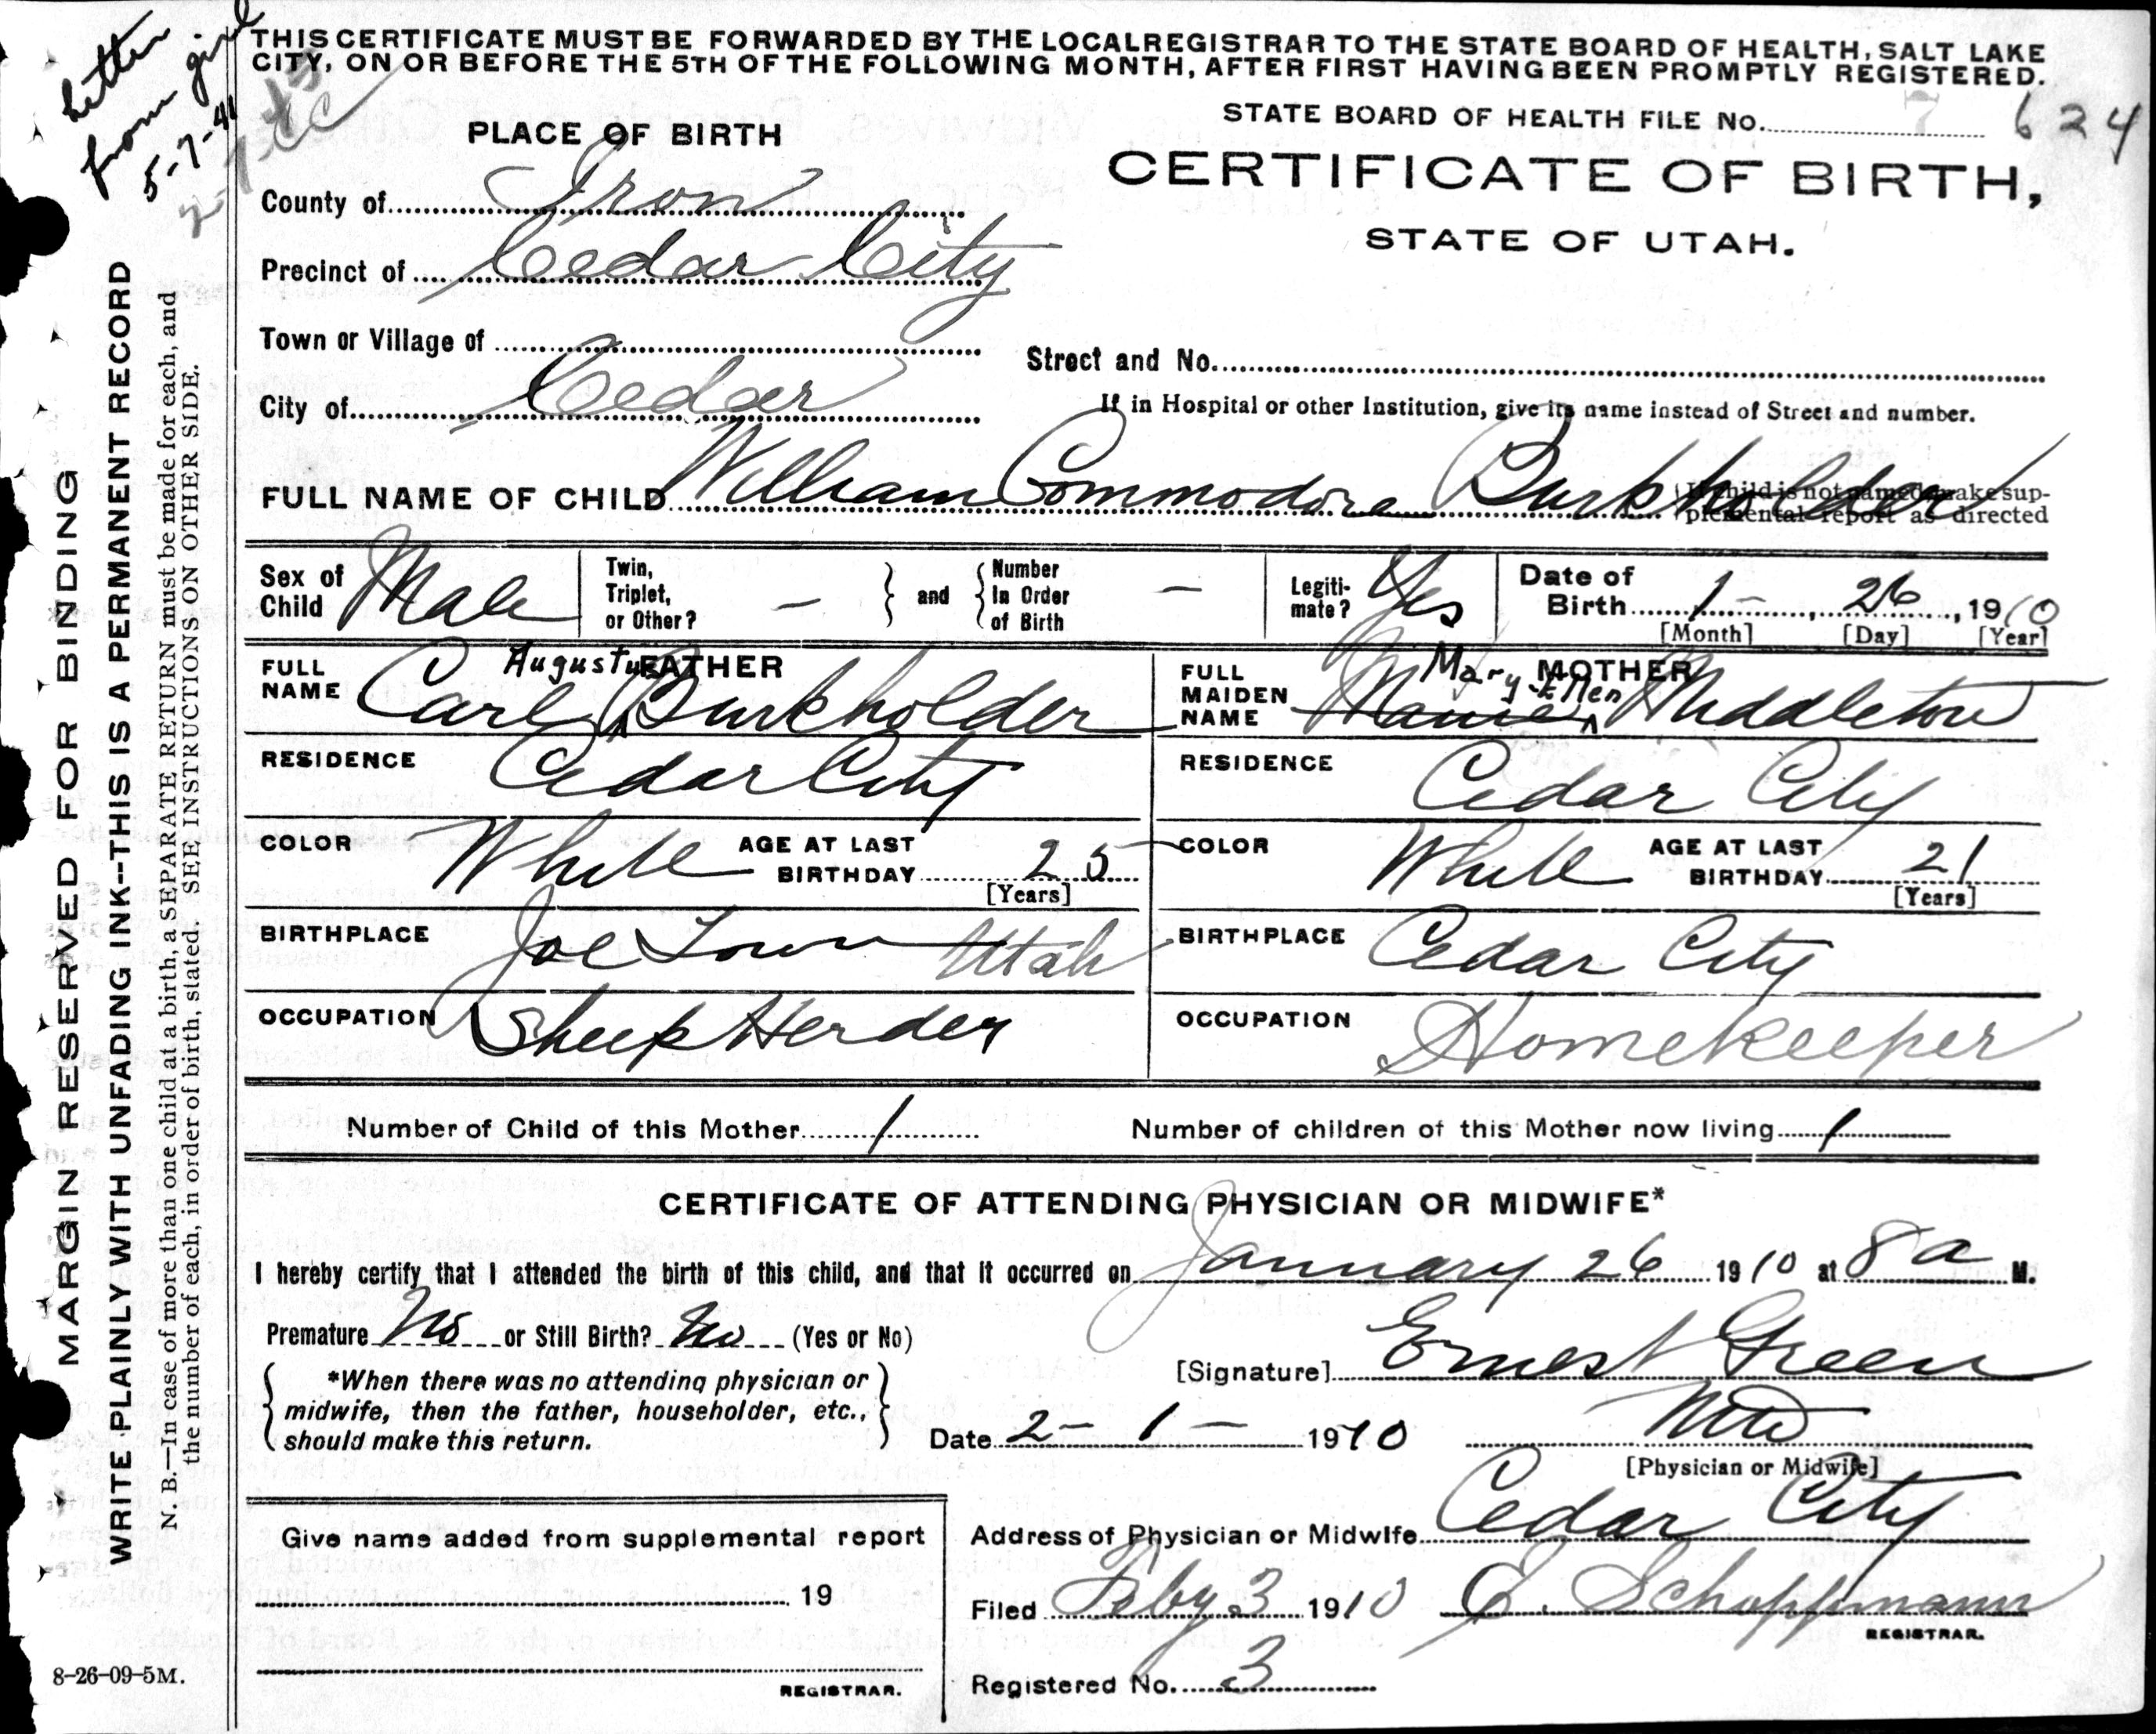 Letter
from girl
5-7-41
THIS CERTIFICATE MUST BE FORWARDED BY THE LOCAL REGISTRAR TO THE STATE BOARD OF HEALTH, SALT LAKE
CITY, ON OR BEFORE THE 5TH OF THE FOLLOWING MONTH, AFTER FIRST HAVING BEEN PROMPTLY REGISTERED.
STATE BOARD OF HEALTH FILE No. 624
PLACE OF BIRTH
CERTIFICATE OF BIRTH,
STATE OF UTAH.
County of Iron
Precinct of Cedar City
Town or Village of
Street and No.
City of Cedar
If in Hospital or other Institution, give its name instead of Street and number.
FULL NAME OF CHILD William Commodore Burkholder
If child is not named make sup-
plemental report as directed
Sex of Child Male
Twin, Triplet, or Other? — and Number In Order of Birth —
Legiti-mate? Yes
Date of Birth 1 - 26, 1910
[Month] [Day] [Year]
FATHER
FULL NAME Carl Augustus Burkholder
MOTHER
FULL MAIDEN NAME Mary Ellen Middleton
RESIDENCE Cedar City
RESIDENCE Cedar City
COLOR White AGE AT LAST BIRTHDAY 25 [Years]
COLOR White AGE AT LAST BIRTHDAY 21 [Years]
BIRTHPLACE Joe Town Utah
BIRTHPLACE Cedar City
OCCUPATION Sheep Herder
OCCUPATION Homekeeper
Number of Child of this Mother 1
Number of children of this Mother now living 1
CERTIFICATE OF ATTENDING PHYSICIAN OR MIDWIFE*
I hereby certify that I attended the birth of this child, and that it occurred on January 26 1910 at 8 a M.
Premature No or Still Birth? No (Yes or No)
*When there was no attending physician or
midwife, then the father, householder, etc.,
should make this return.
[Signature] Ernest Green
Date 2 - 1 - 1910
MD
[Physician or Midwife]
Give name added from supplemental report
19
REGISTRAR.
Address of Physician or Midwife Cedar City
Filed Feby 3 1910 E. Schoppmann
REGISTRAR.
Registered No. 3
8-26-09-5M.
MARGIN RESERVED FOR BINDING
WRITE PLAINLY WITH UNFADING INK--THIS IS A PERMANENT RECORD
N. B.—In case of more than one child at a birth, a SEPARATE RETURN must be made for each, and
the number of each, in order of birth, stated. SEE INSTRUCTIONS ON OTHER SIDE.